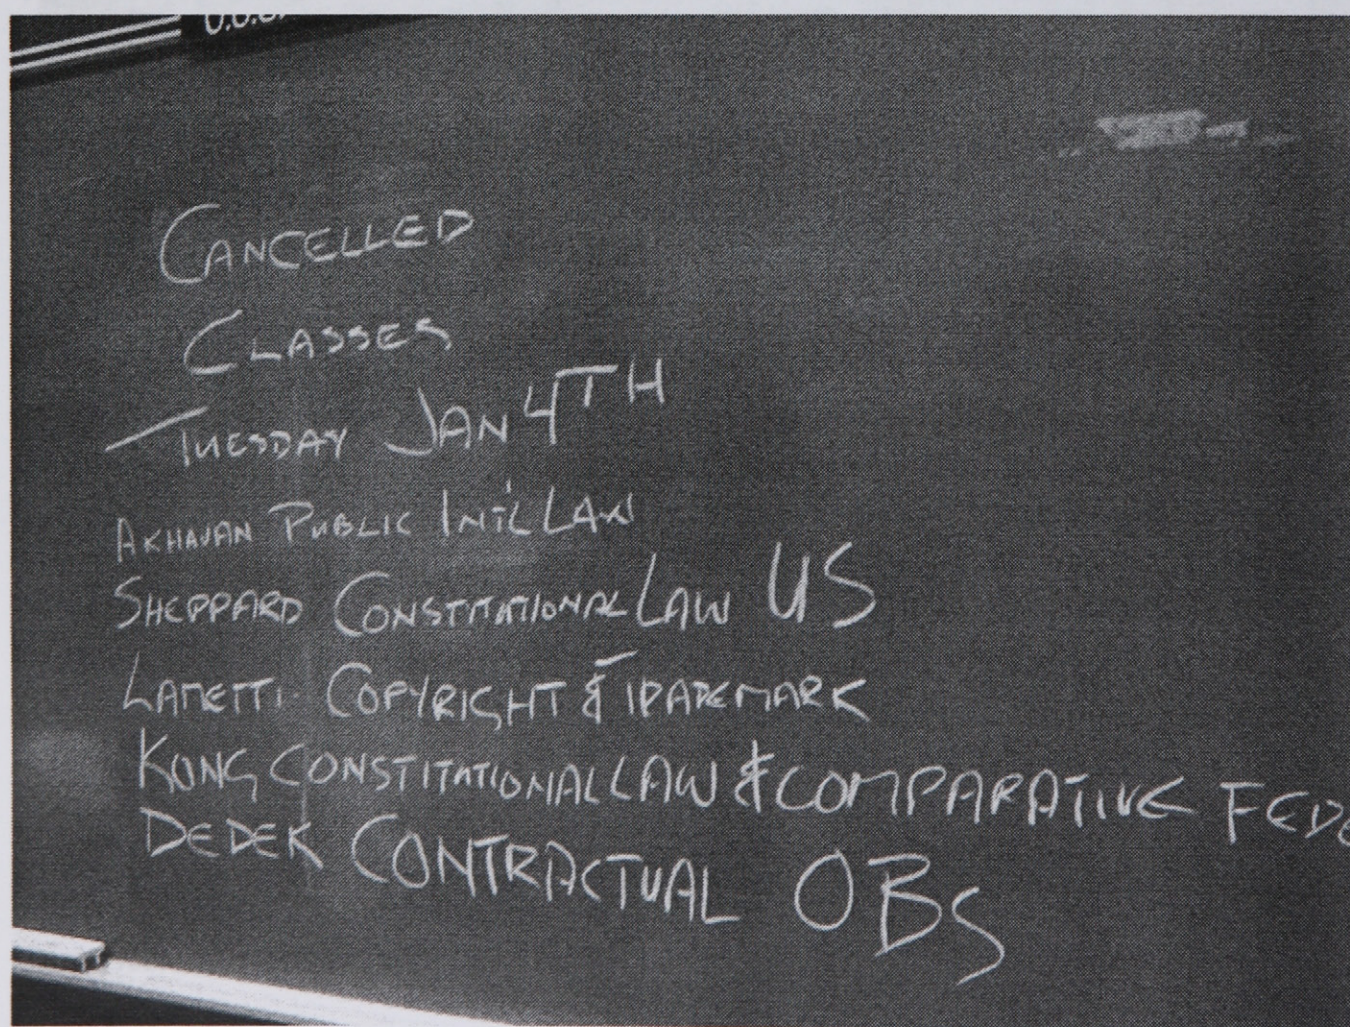 CANCELLED
CLASSES
TUESDAY JAN 4TH
AKHAVAN PUBLIC INT'L LAW
SHEPPARD CONSTITUTIONAL LAW US
LAMETTI. COPYRIGHT & TRADEMARK
KONG CONSTITUTIONAL LAW & COMPARATIVE FEDE
DEDEK CONTRACTUAL OBS